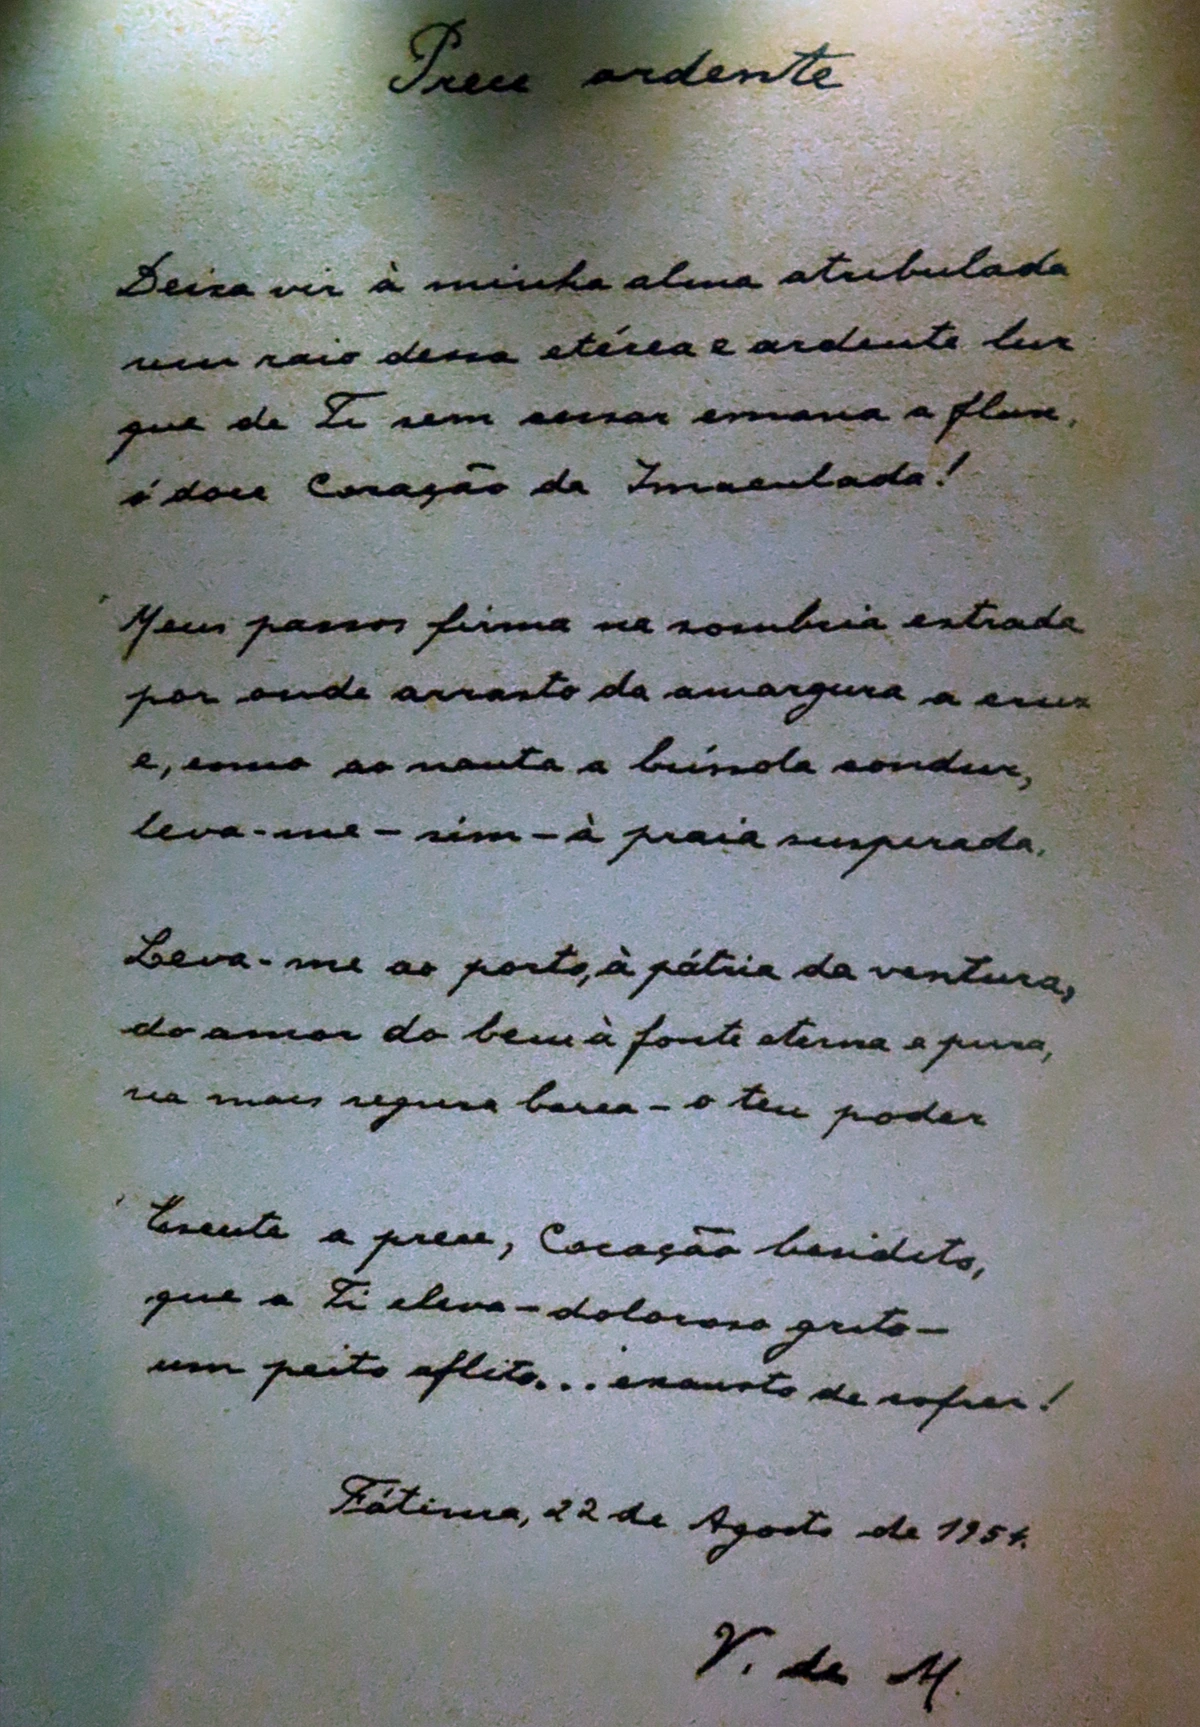 Prece ardente
Deixa vir à minha alma atribulada
um raio dessa etérea e ardente luz
que de Ti sem cessar emana a flux,
ó doce Coração da Imaculada!
Meus passos firma na sombria estrada
por onde arrasto da amargura a cruz
e, como ao nauta a bússola conduz,
leva-me – sim – à praia suspirada.
Leva-me ao porto, à pátria da ventura,
do amor do bem à fonte eterna e pura,
na mais segura barca – o teu poder
Escuta a prece, Coração bendito,
que a Ti eleva – doloroso grito –
um peito aflito... exausto de sofrer!
Fátima, 22 de Agosto de 1954.
V. de M.